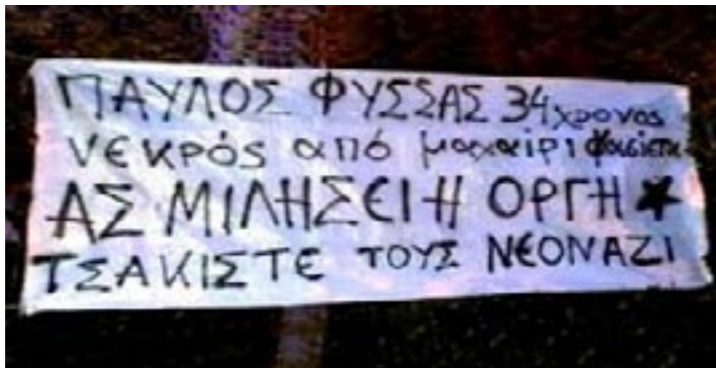 ΠΑΥΛΟΣ ΦΥΣΣΑΣ 34χρονος
νεκρός από μαχαίρι φασίστα
ΑΣ ΜΙΛΗΣΕΙ Η ΟΡΓΗ ★
ΤΣΑΚΙΣΤΕ ΤΟΥΣ ΝΕΟΝΑΖΙ